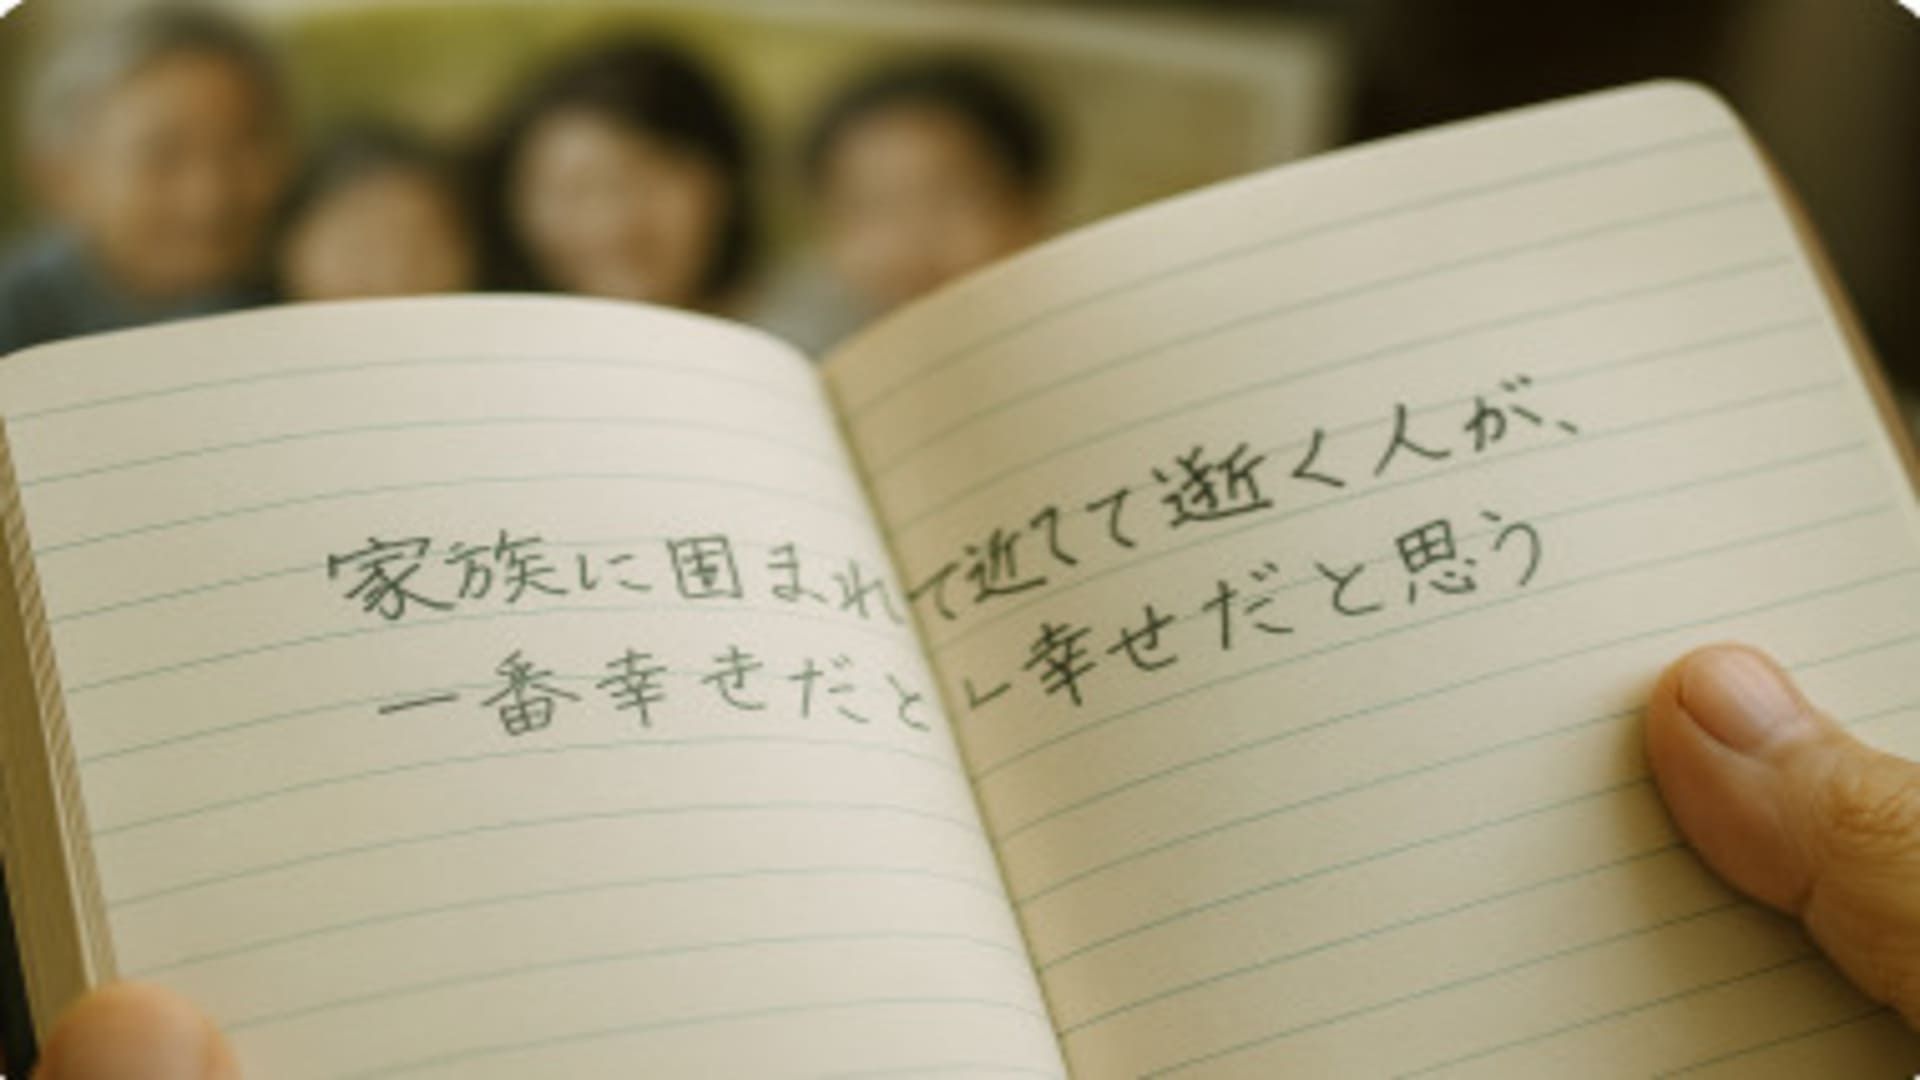 家族に囲まれて近てて逝く人が、
一番幸せだと幸せだと思う